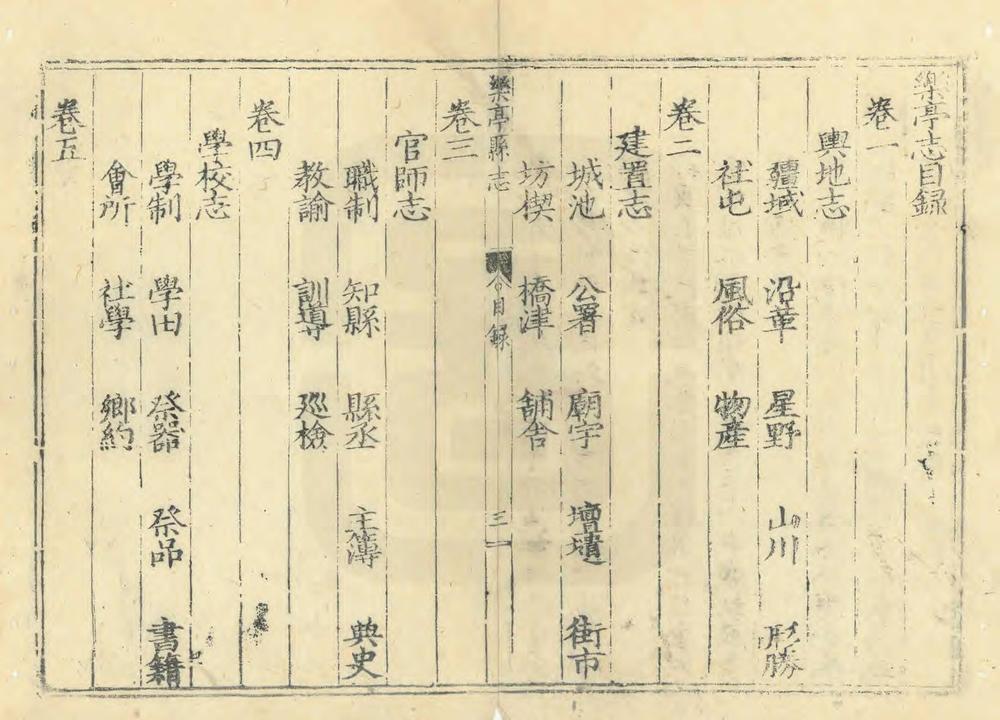 樂亭志目録
卷一
輿地志
疆域 沿革 星野 山川 形勝
社屯 風俗 物産
卷二
建置志
城池 公署 廟宇 壇壝 街市
坊楔 橋津 舖舍
樂亭縣志 目録
卷三
官師志
職制 知縣 縣丞 主簿 典史
教諭 訓導 廵檢
卷四
學校志
學制 學田 祭器 祭品 書籍
會所 社學 鄉約
卷五